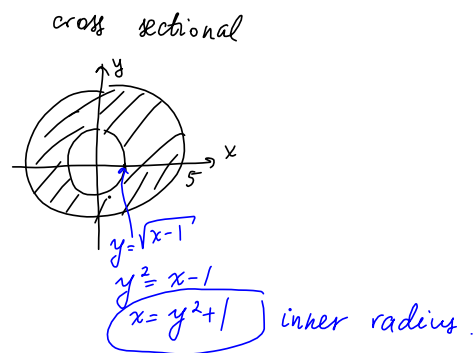 cross sectional
y
x
5
y=√(x-1)
y²=x-1
x=y²+1 inner radius.